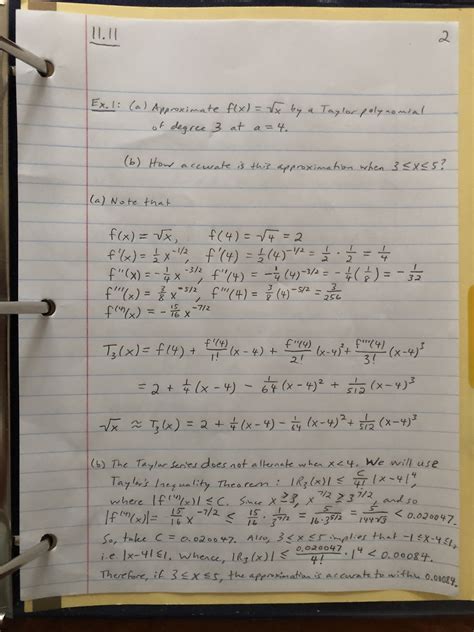 11.11 2
Ex.1: (a) Approximate f(x) = √x by a Taylor polynomial
of degree 3 at a = 4.
(b) How accurate is this approximation when 3 ≤ x ≤ 5?
(a) Note that
f(x) = √x, f(4) = √4 = 2
f'(x) = 1/2 x^(-1/2), f'(4) = 1/2 (4)^(-1/2) = 1/2 · 1/2 = 1/4
f''(x) = -1/4 x^(-3/2), f''(4) = -1/4 (4)^(-3/2) = -1/4 (1/8) = -1/32
f'''(x) = 3/8 x^(-5/2), f'''(4) = 3/8 (4)^(-5/2) = 3/256
f^(4)(x) = -15/16 x^(-7/2)
T₃(x) = f(4) + f'(4)/1! (x-4) + f''(4)/2! (x-4)² + f'''(4)/3! (x-4)³
= 2 + 1/4 (x-4) - 1/64 (x-4)² + 1/512 (x-4)³
√x ≈ T₃(x) = 2 + 1/4 (x-4) - 1/64 (x-4)² + 1/512 (x-4)³
(b) The Taylor series does not alternate when x < 4. We will use
Taylor's Inequality Theorem: |R₃(x)| ≤ C/4! |x-4|⁴,
where |f^(4)(x)| ≤ C. Since x ≥ 3, x^(7/2) ≥ 3^(7/2), and so
|f^(4)(x)| = 15/16 x^(-7/2) ≤ 15/16 · 1/3^(7/2) = 5/(16·3^(5/2)) = 5/(144√3) < 0.020047.
So, take C = 0.020047. Also, 3 ≤ x ≤ 5 implies that -1 ≤ x-4 ≤ 1,
i.e. |x-4| ≤ 1. Whence, |R₃(x)| ≤ 0.020047/4! · 1⁴ < 0.00084.
Therefore, if 3 ≤ x ≤ 5, the approximation is accurate to within 0.00084.